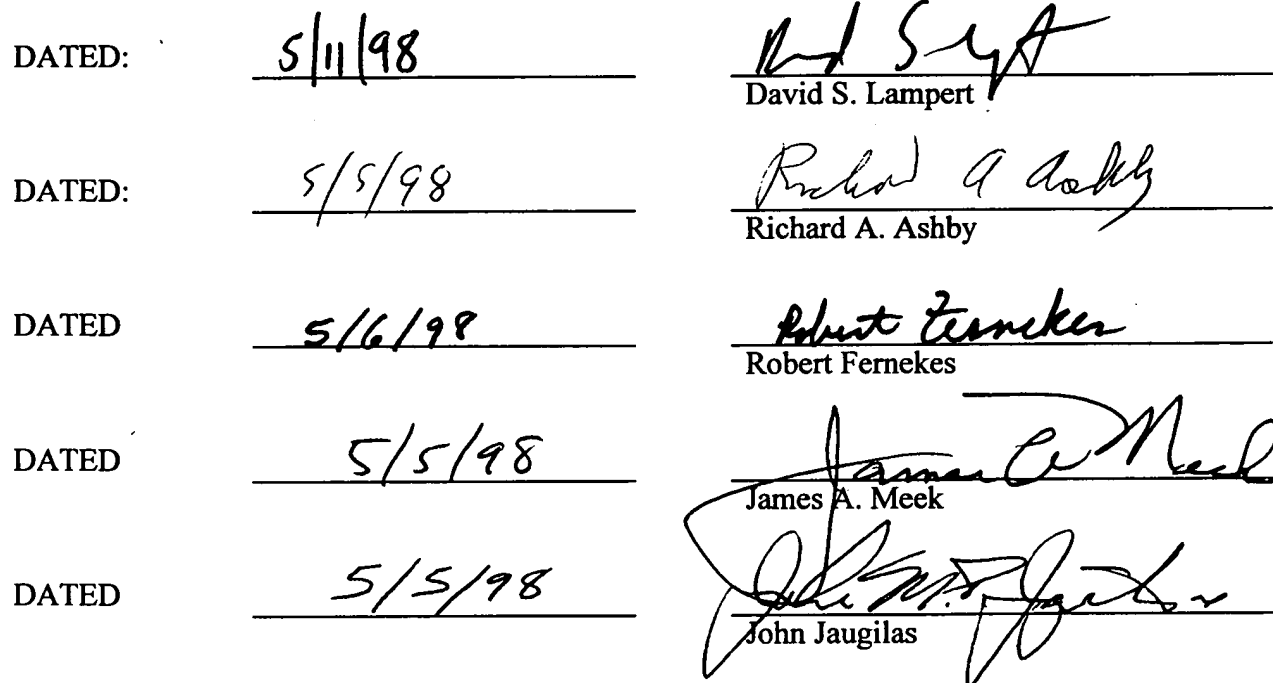 DATED: 5/11/98
David S. Lampert
DATED: 5/5/98 Richard A Ashby
Richard A. Ashby
DATED 5/6/98 Robert Fernekes
Robert Fernekes
DATED 5/5/98 James A Meek
James A. Meek
DATED 5/5/98 John M.
John Jaugilas